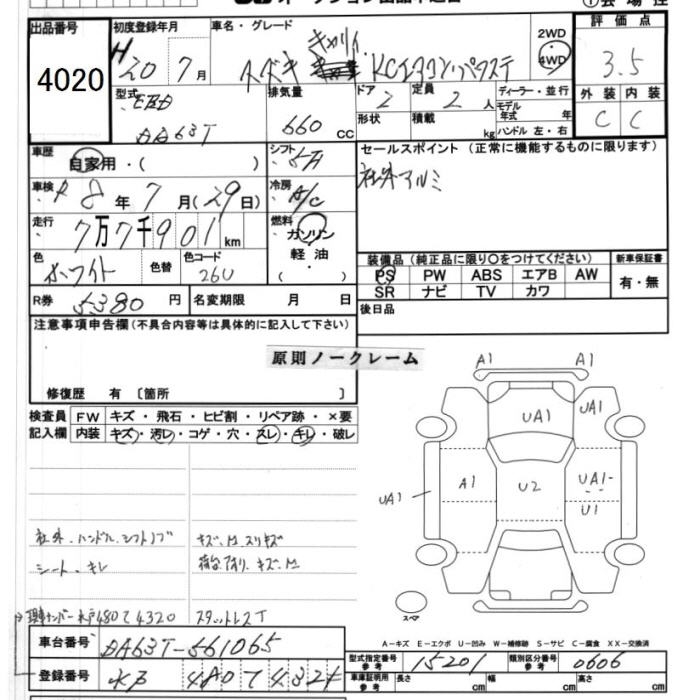 出品番号
4020
初度登録年月
H 20 7 月
車名・グレード
スズキ キャリイ KCエアコン・パワステ
2WD
4WD
評価点
3.5
外装 内装
C C
型式
EBD
DA63T
排気量
660 cc
ドア 2
定員 2 人
ディーラー・並行
モデル年式 年
形状
積載 kg
ハンドル 左・右
車歴 自家用・( )
シフト
セールスポイント (正常に機能するものに限ります)
社外アルミ
車検 R 8 年 7 月 (29日)
冷房 A/C
走行 7万7千901 km
燃料
ガソリン
軽油
・( )
色 ホワイト
色替
色コード 26U
装備品 (純正品に限り○をつけてください)
新車保証書
PS PW ABS エアB AW
有・無
SR ナビ TV カワ
R券 5380 円
名変期限 月 日
後日品
注意事項申告欄 (不具合内容等は具体的に記入して下さい)
原則ノークレーム
修復歴 有 〔箇所 〕
検査員 FW キズ・飛石・ヒビ割・リペア跡・×要
記入欄 内装 キズ・汚レ・コゲ・穴・スレ・キレ・破レ
A1 A1
UA1 UA1
UA1 A1 U2 UA1
U1
社外.ハンドル.シフトノブ キズ.M.スリキズ
シート.キレ 荷台アオリ.キズ.M
現車ナンバー水戸480て4320 スタッドレスT
スペア
A-キズ E-エクボ U-凹み W-補修跡 S-サビ C-腐食 XX-交換済
車台番号 DA63T-561065
型式指定番号 参考 15201
類別区分番号 参考 0606
登録番号 水戸 480て432
車庫証明用 参考 長さ cm 幅 cm 高さ cm